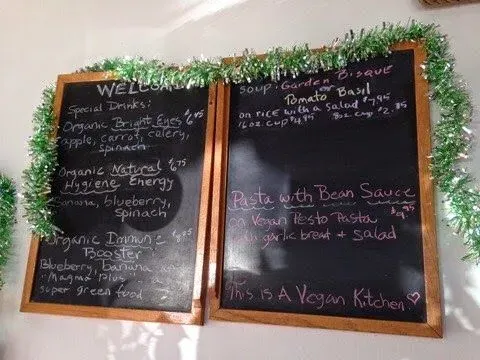 WELCOME
Special Drinks:
Organic Bright Eyes $6.45
apple, carrot, celery,
spinach
Organic Natural $6.75
Hygiene Energy
Banana, blueberry,
Spinach
Organic Immune $8.95
Booster
Blueberry, banana
Magma Plus: a
super green food
Soup: Garden Bisque
or
Tomato Basil
on rice with a salad $7.95
16oz. cup $4.95 8oz cup $2.95
Pasta with Bean Sauce
on Vegan Pesto Pasta $9.95
with garlic bread + salad
This is A Vegan Kitchen ♡